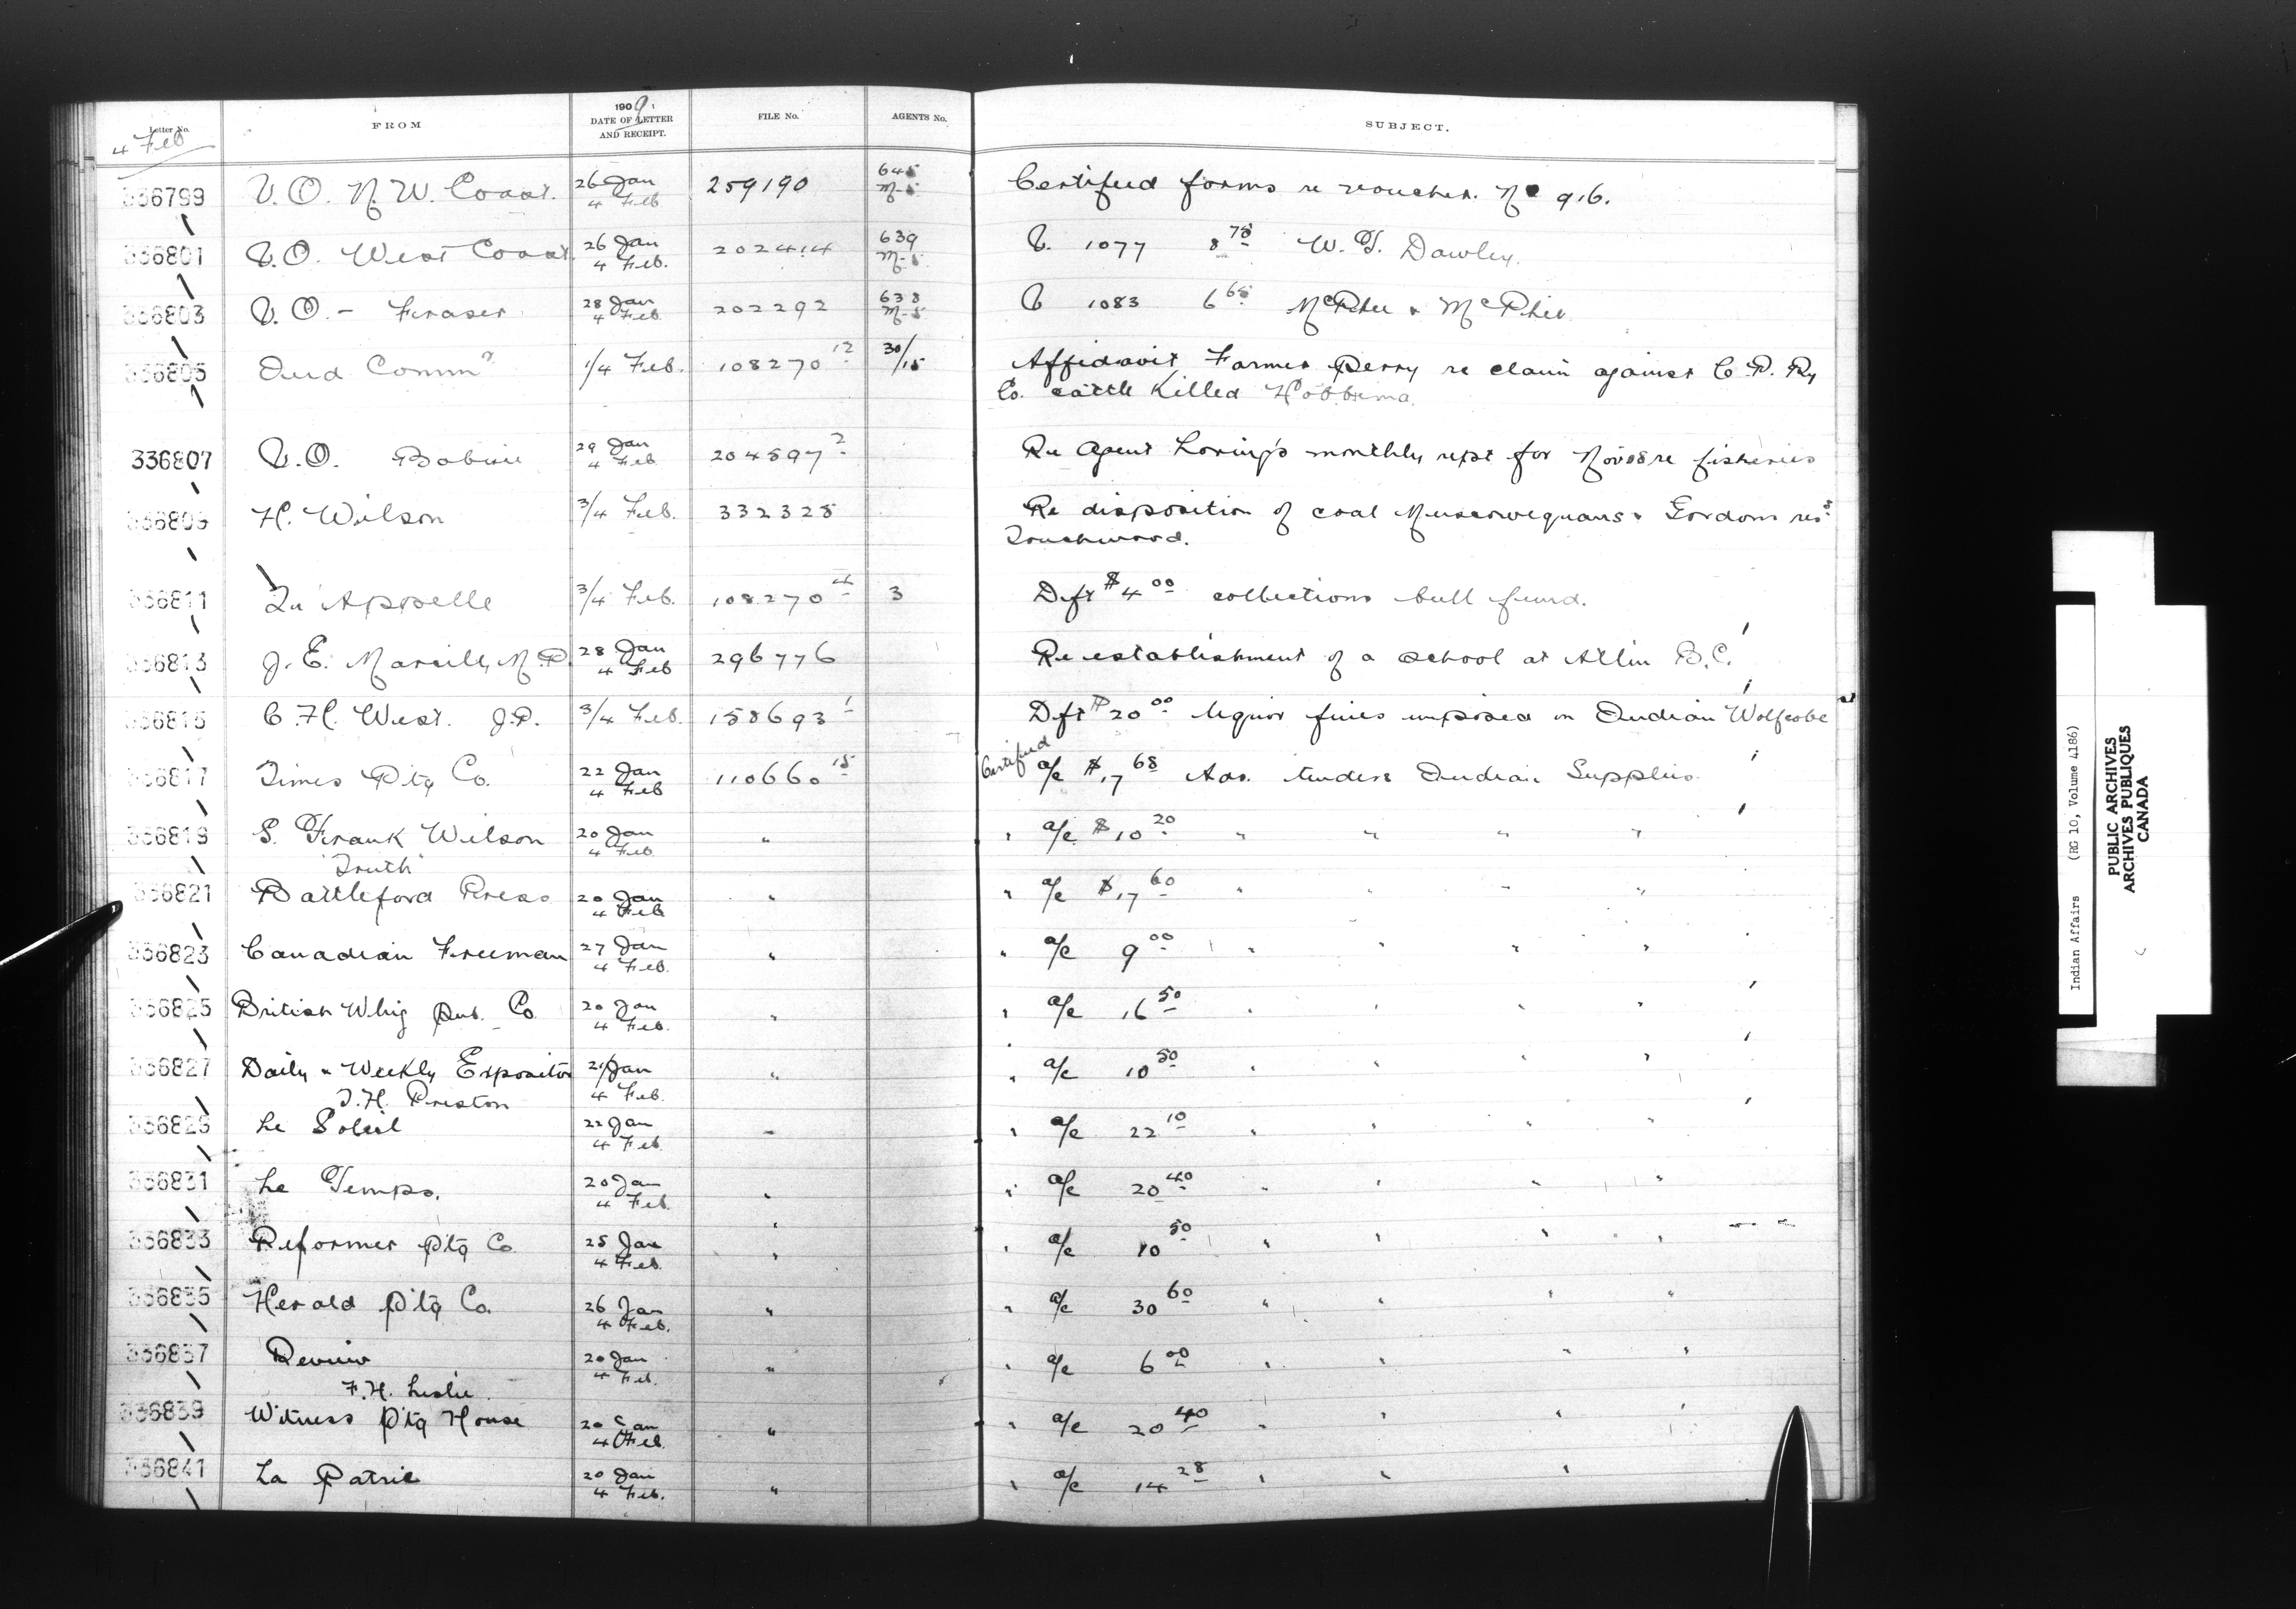 Letter No. FROM 1909 DATE OF LETTER AND RECEIPT. FILE No. AGENTS No. SUBJECT.
4 Feb
336799 V.O. N.W. Coast. 26 Jan 4 Feb 259190 645 M-5 Certified forms re voucher. No 916.
336801 V.O. West Coast. 26 Jan 4 Feb. 202414 639 M-5 V. 1077 8 75 W. T. Dawley.
336803 V.O. - Fraser 28 Jan 4 Feb 202292 638 M-5 V 1083 6 65 McPhee & McPhee
336805 Ind Commr 1/4 Feb. 108270 12 30/15 Affidavit Farmer Perry re claim against C.P. Ry
Co. cattle Killed Hobbema.
336807 V.O. Babine 29 Jan 4 Feb 204597 2 Re Agent Loring's monthly rept for Nov 08 re fisheries
336809 H. Wilson 3/4 Feb. 332328 Re disposition of coal Muscowequans & Gordons res
Touchwood.
336811 Qu'Appelle 3/4 Feb. 108270 4 3 Dft $4 00 collections bull fund.
336813 J. E. Marcil, M.P. 28 Jan 4 Feb 296776 Re establishment of a school at Atlin B.C.
336815 C. H. West. J.P. 3/4 Feb. 158693 1 Dft $20 00 liquor fines imposed on Indian Wolfrobe
336817 Times Ptg Co. 22 Jan 4 Feb 110660 15 Certified a/c $17 68 Adv. tenders Indian Supplies.
336819 S. Frank Wilson 20 Jan 4 Feb " " a/c $10 20 " " " "
"Truth"
336821 Battleford Press 20 Jan 4 Feb " " a/c $17 60 " " " "
336823 Canadian Freeman 27 Jan 4 Feb. " " a/c 9 00 " " " "
336825 British Whig Pub. Co. 20 Jan 4 Feb. " " a/c 16 50 " " " "
336827 Daily & Weekly Expositor 21 Jan 4 Feb. " " a/c 10 50 " " " "
T.H. Preston
336829 Le Soleil 22 Jan 4 Feb. " " a/c 22 10 " " " "
336831 Le Temps. 20 Jan 4 Feb. " " a/c 20 40 " " " "
336833 Reformer Ptg Co. 25 Jan 4 Feb. " " a/c 10 50 " " " "
336835 Herald Ptg Co. 26 Jan 4 Feb. " " a/c 30 60 " " " "
336837 Review 20 Jan 4 Feb. " " a/c 6 00 " " " "
F.H. Leslie.
336839 Witness Ptg House 20 Jan 4 Feb. " " a/c 20 40 " " " "
336841 La Patrie 20 Jan 4 Feb. " " a/c 14 28 " " "
Indian Affairs (RG 10, Volume 4186)
PUBLIC ARCHIVES
ARCHIVES PUBLIQUES
CANADA